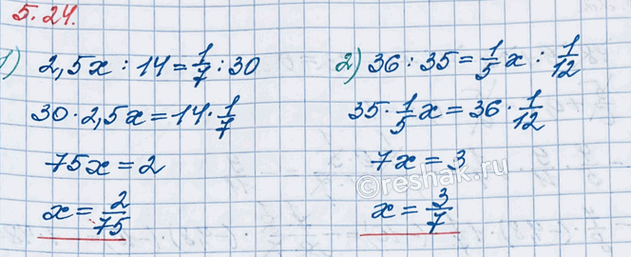 5.24.
1) 2,5x : 14 = 1/7 : 30
30 · 2,5x = 14 · 1/7
75x = 2
x = 2/75
2) 36 : 35 = 1/5 x : 1/12
35 · 1/5 x = 36 · 1/12
7x = 3
x = 3/7
©reshak.ru